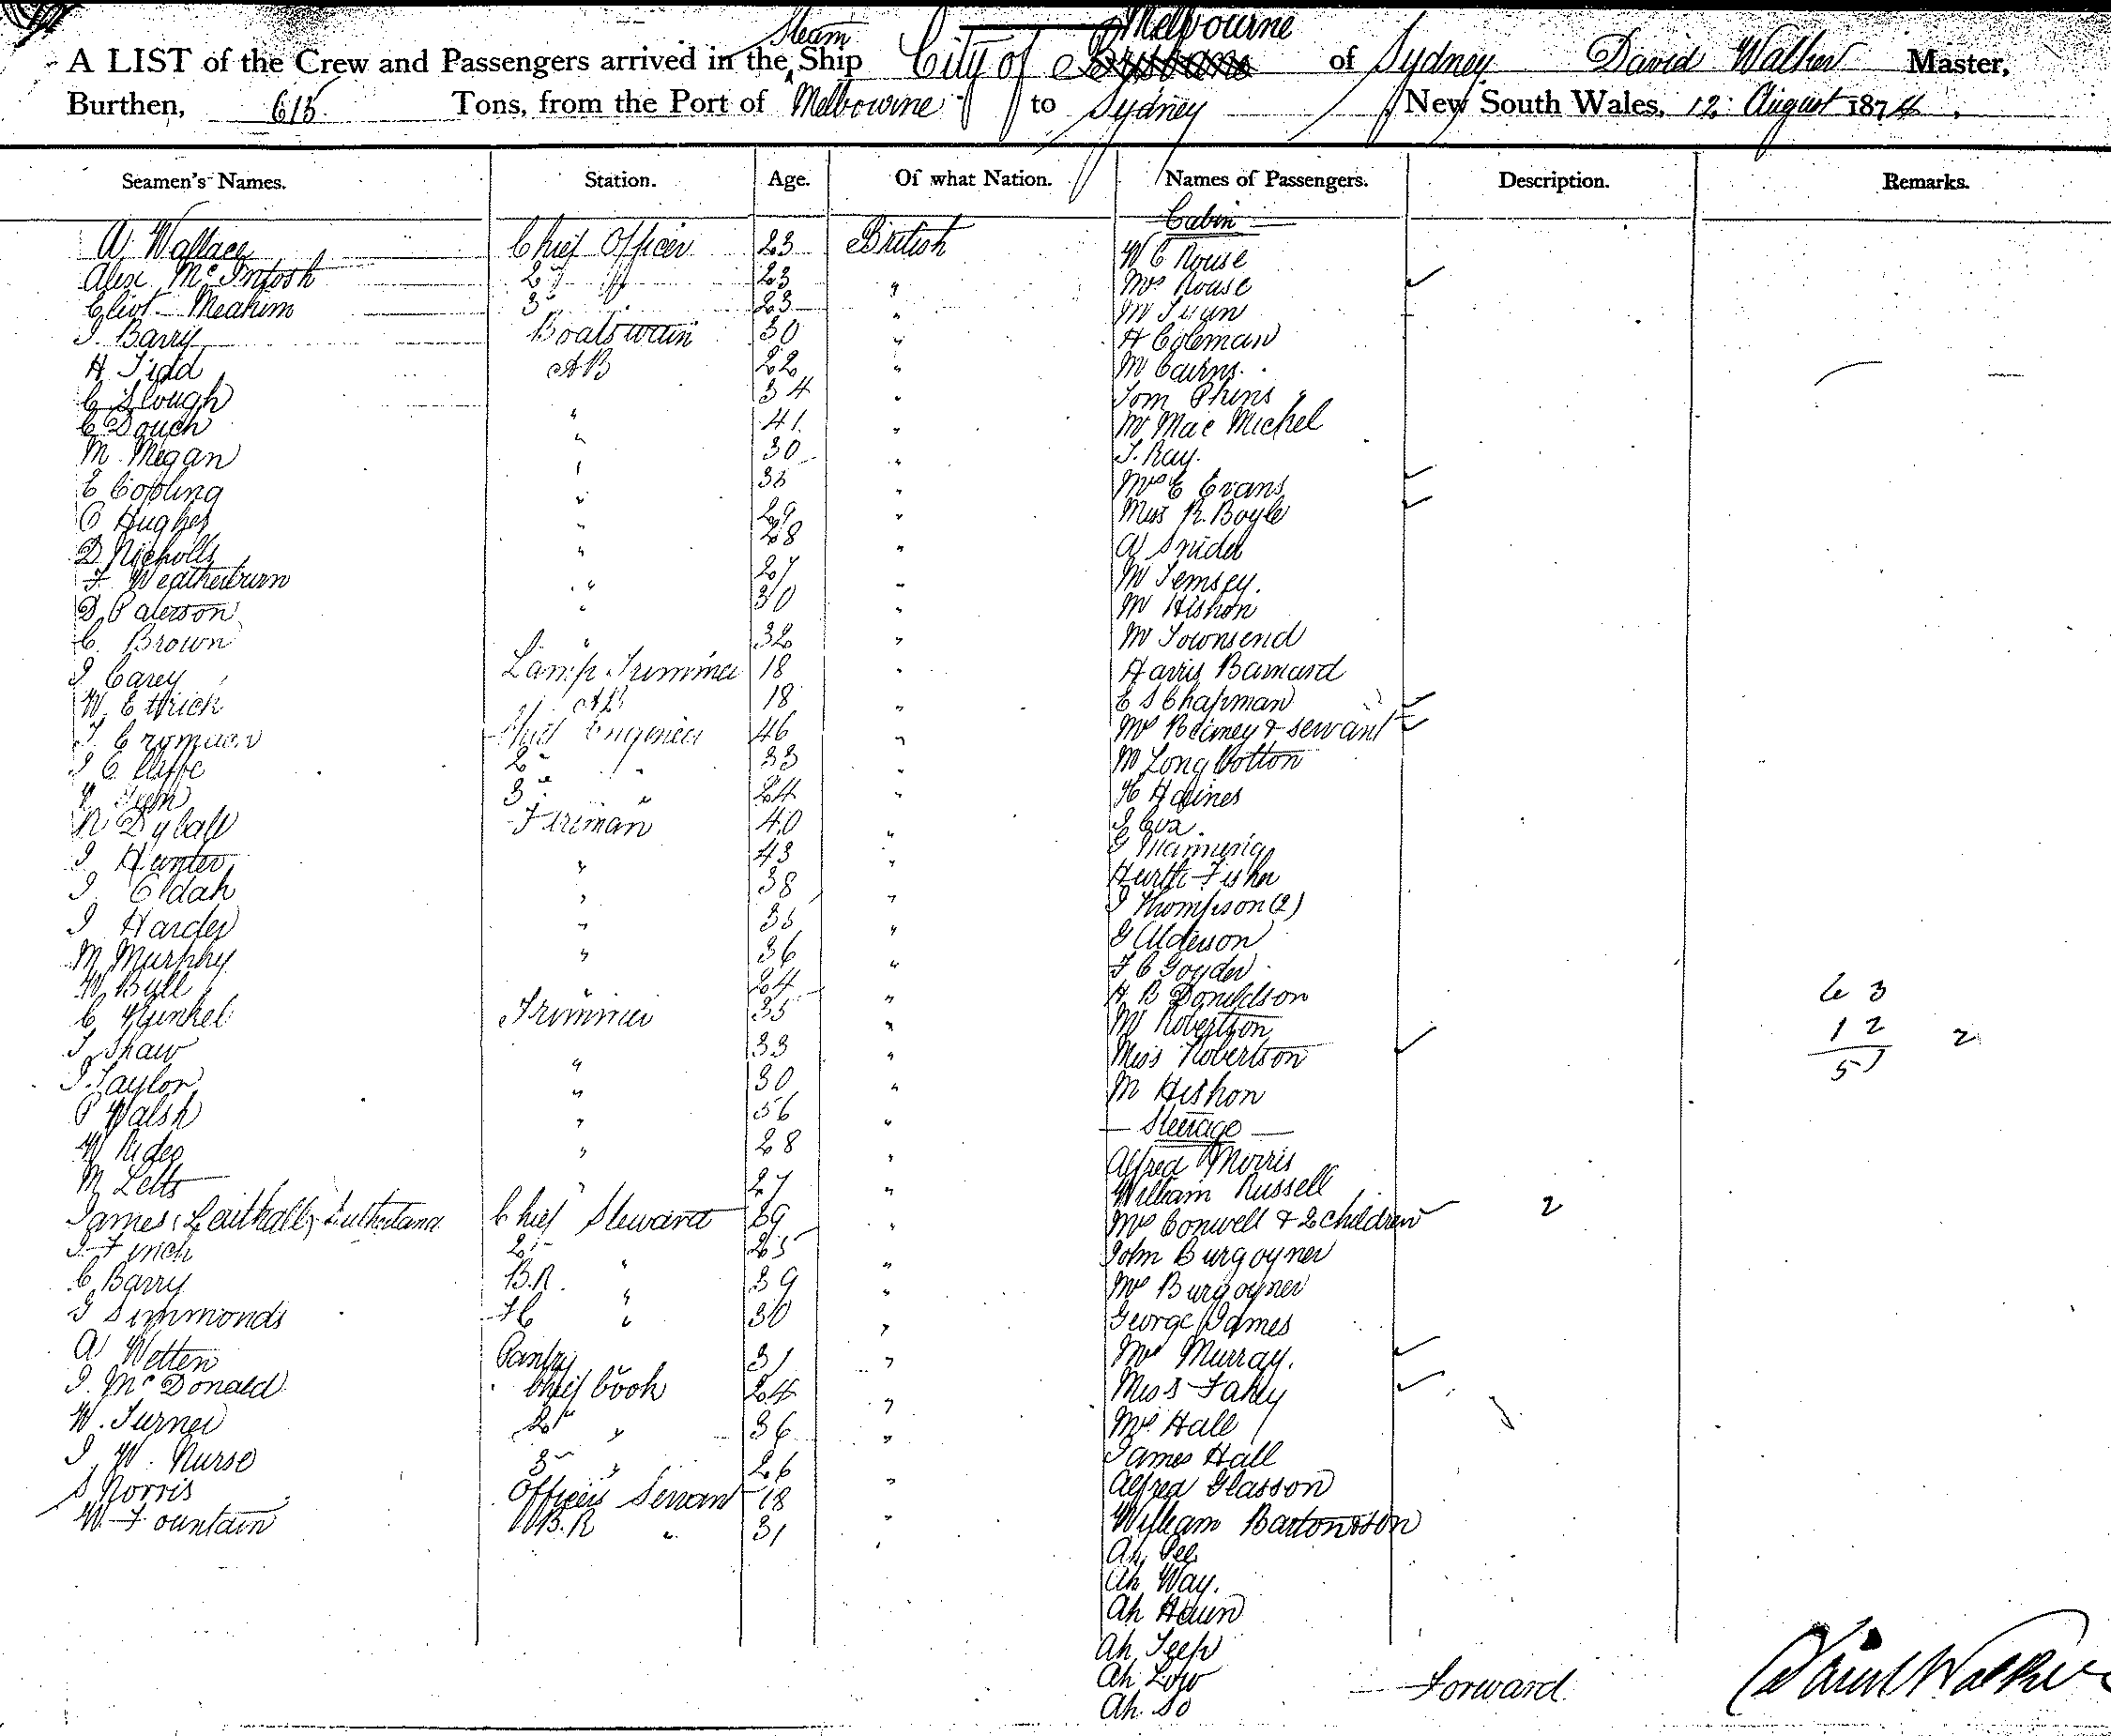 Steam Melbourne
A LIST of the Crew and Passengers arrived in the Ship City of Brisbane of Sydney David Walker Master,
Burthen, 615 Tons, from the Port of Melbourne to Sydney New South Wales, 12 August 1874.
Seamen's Names. Station. Age. Of what Nation. Names of Passengers. Description. Remarks.
Cabin
A Wallace Chief Officer 23 British W C Rouse
Alex McIntosh 2 " 23 " Mrs Rouse
Eliot Meahim 3 " 23 " M
J Barry Boatswain 30 " H Coleman
H Tidd AB 22 " M Cairns
C Slough " 34 " Tom
C Douch " 41 " Mr Mac Michel
M Megan " 30 " J. Ray.
E " " Mrs E Evans
P Hughes " 29 " Miss R. Boyle
D Nicholls " 28 " A Snider
F Weatherburn " 27 " M
D Paterson " 30 " M Hishon
C. Brown " 32 " M Townsend
J Carey Lamp Trimmer 18 " Harris Barnard
W. Ettrick AB 18 " E S Chapman
J. Chief Engineer 46 " Mrs & servant
J 2 " 33 " M Long Botton
3 " 24 " H Haines
N Dyball Fireman 40 " J Cox.
J Hunter " 43 " G Manning
J. Eldah " 38 " Fisher
J Harder " 35 " J Thompson (2)
M Murphy " 36 " G Alderson
W Bull " 24 " F C Goyder
C Trimmer 35 " H B Donaldson 63
J Shaw " 33 " M Robertson 12 2
J. Taylor " 30 " Miss Robertson 51
P Walsh " 56 " M Hishon
W Rider " 28 " Steerage
M Letts " 27 " Alfred Morris
James Leuthall Sutherland Chief Steward 29 " William Russell
J Finch 2 " 25 " Mrs Conwell & 2 children 2
C Barry B.R. " 39 " John Burgoyner
G Simmonds F C " 30 " Mrs Burgoyner
A Wetten Pantry 31 " George James
J. McDonald Chief Cook 24 " Mrs Murray.
W. Turner 2 " 36 " Miss Fahey
J. W. Nurse 3 " 26 " Mrs Hall
S Norris Officers Servant 18 " James Hall
W. Fountain B.R " 31 " Alfred Glasson
William
Ah Pee
Ah Way.
Ah Houn
Ah Teep
Ah Low Forward David Walker
Ah So